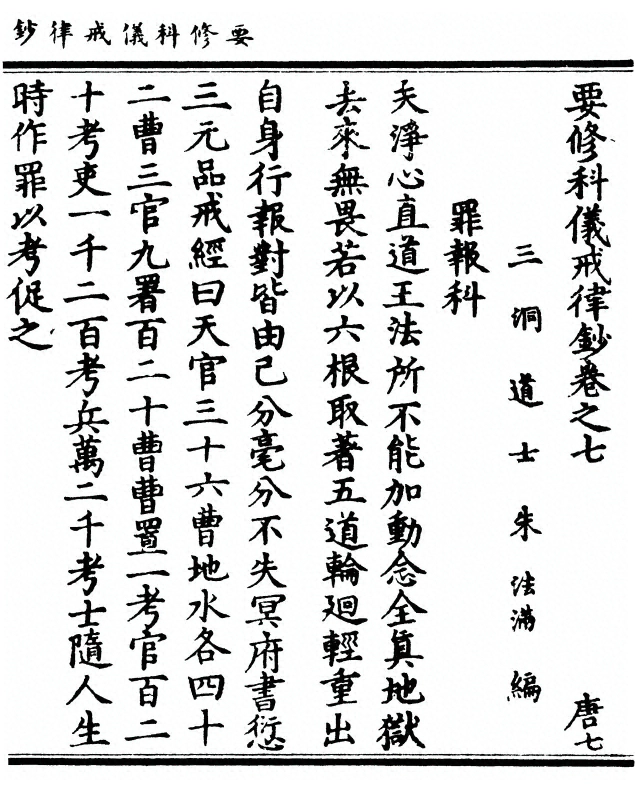 要修科儀戒律鈔
要修科儀戒律鈔卷之七 唐七
三洞道士朱法滿編
罪報科
夫淨心直道王法所不能加動念全真地獄
去來無畏若以六根取著五道輪迴輕重出
自身行報對皆由己分毫分不失冥府書愆
三元品戒經曰天官三十六曹地水各四十
二曹三官九署百二十曹曹置一考官百二
十考吏一千二百考兵萬二千考士隨人生
時作罪以考促之